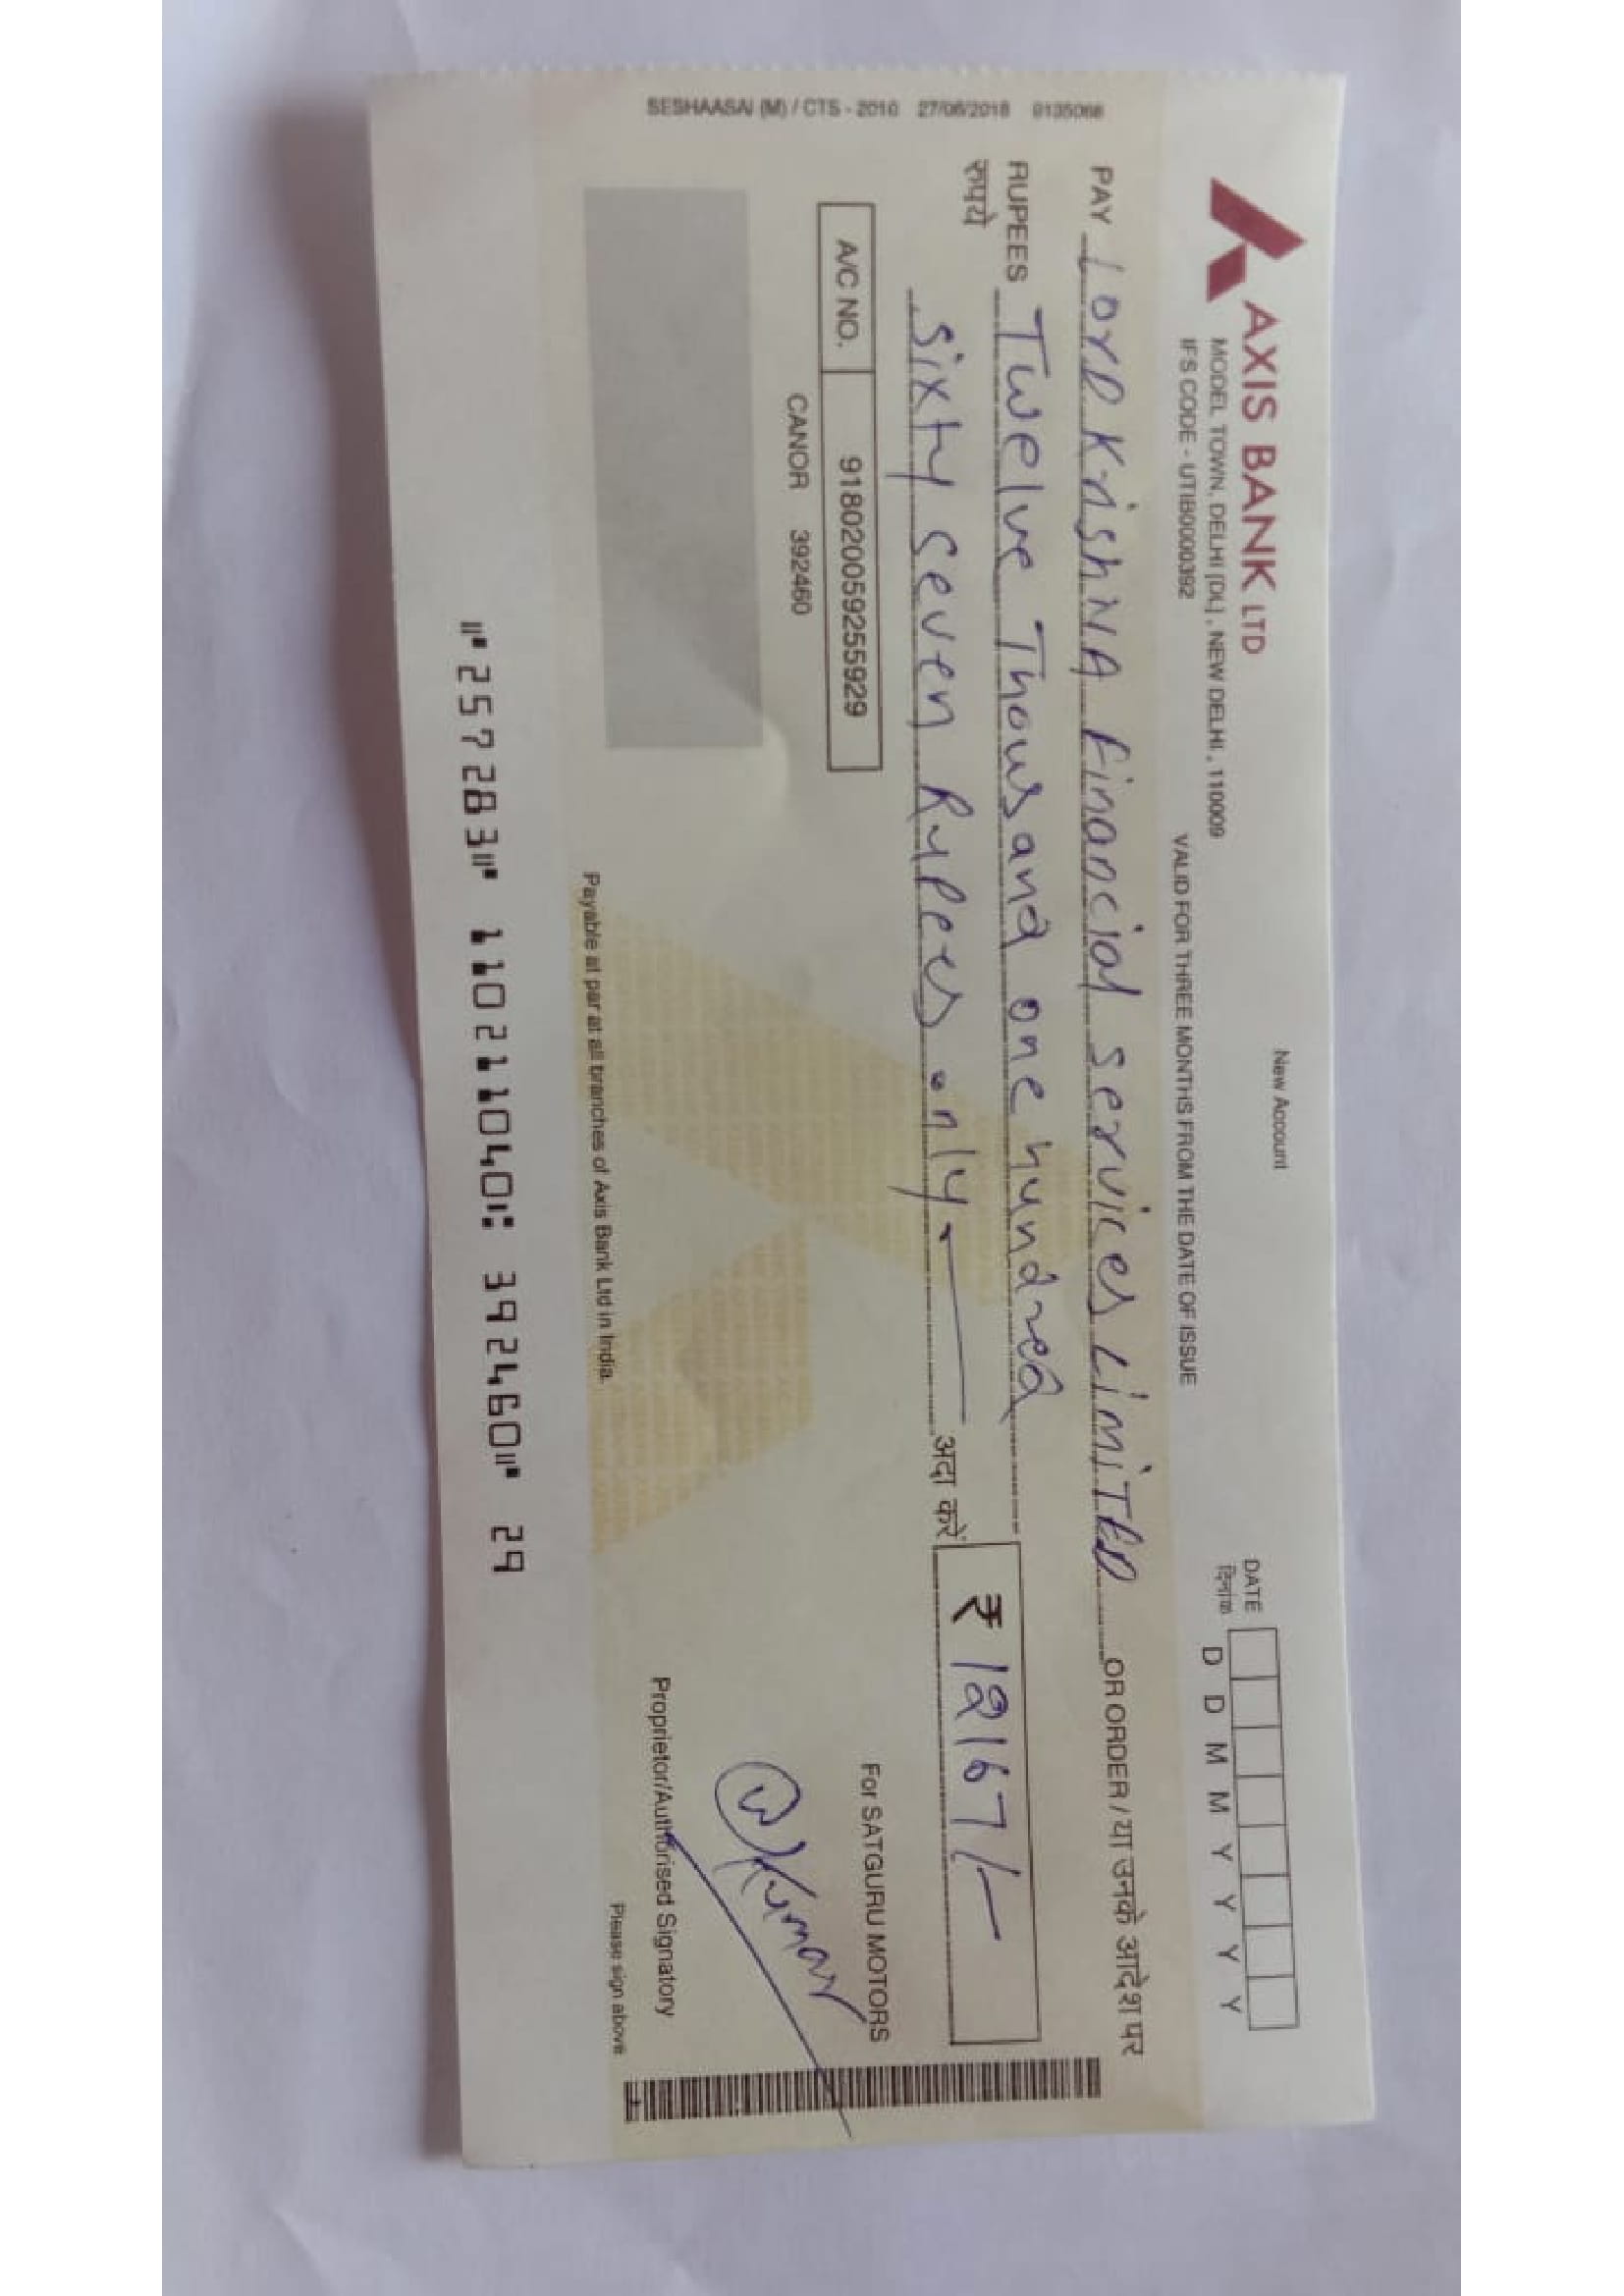 AXIS BANK LTD
MODEL TOWN, DELHI [DL], NEW DELHI, 110009
IFS CODE - UTIB0000392
New Account
VALID FOR THREE MONTHS FROM THE DATE OF ISSUE
DATE
दिनांक
D D M M Y Y Y Y
PAY Lord KrishNA Financial services LimiTED OR ORDER / या उनके आदेश पर
RUPEES Twelve Thousand one hundred
रुपये sixty seven Rupees only - अदा करें
₹ 12167/-
A/C NO. 918020059255929
CANOR 392460
For SATGURU MOTORS
Kumar
Proprietor/Authorised Signatory
Please sign above
Payable at par at all branches of Axis Bank Ltd in India.
⑈257283⑈ 110211040⑆ 392460⑈ 29
SESHAASAI (M) / CTS - 2010 27/06/2018